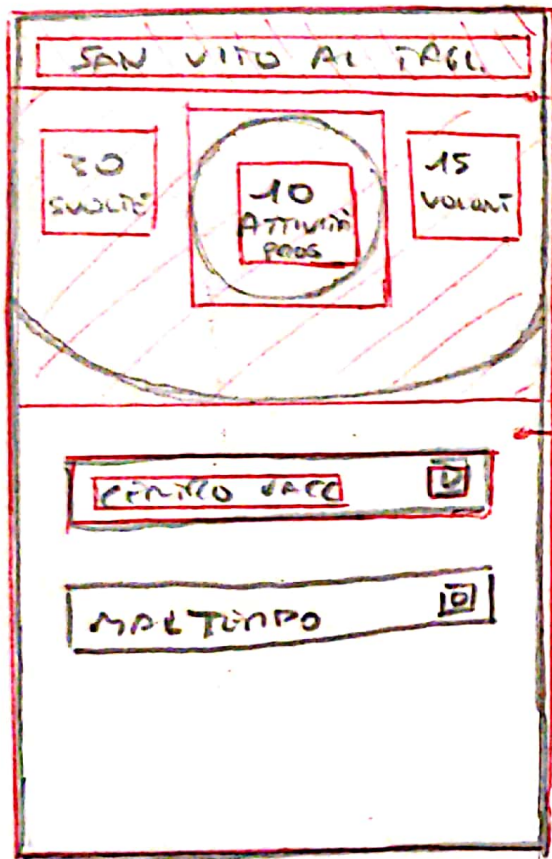 SAN VITO AL TAGL.
30
SVOLTE
10
ATTIVITÀ
PROG
15
VOLONT
CENTRO VACC
MALTEMPO